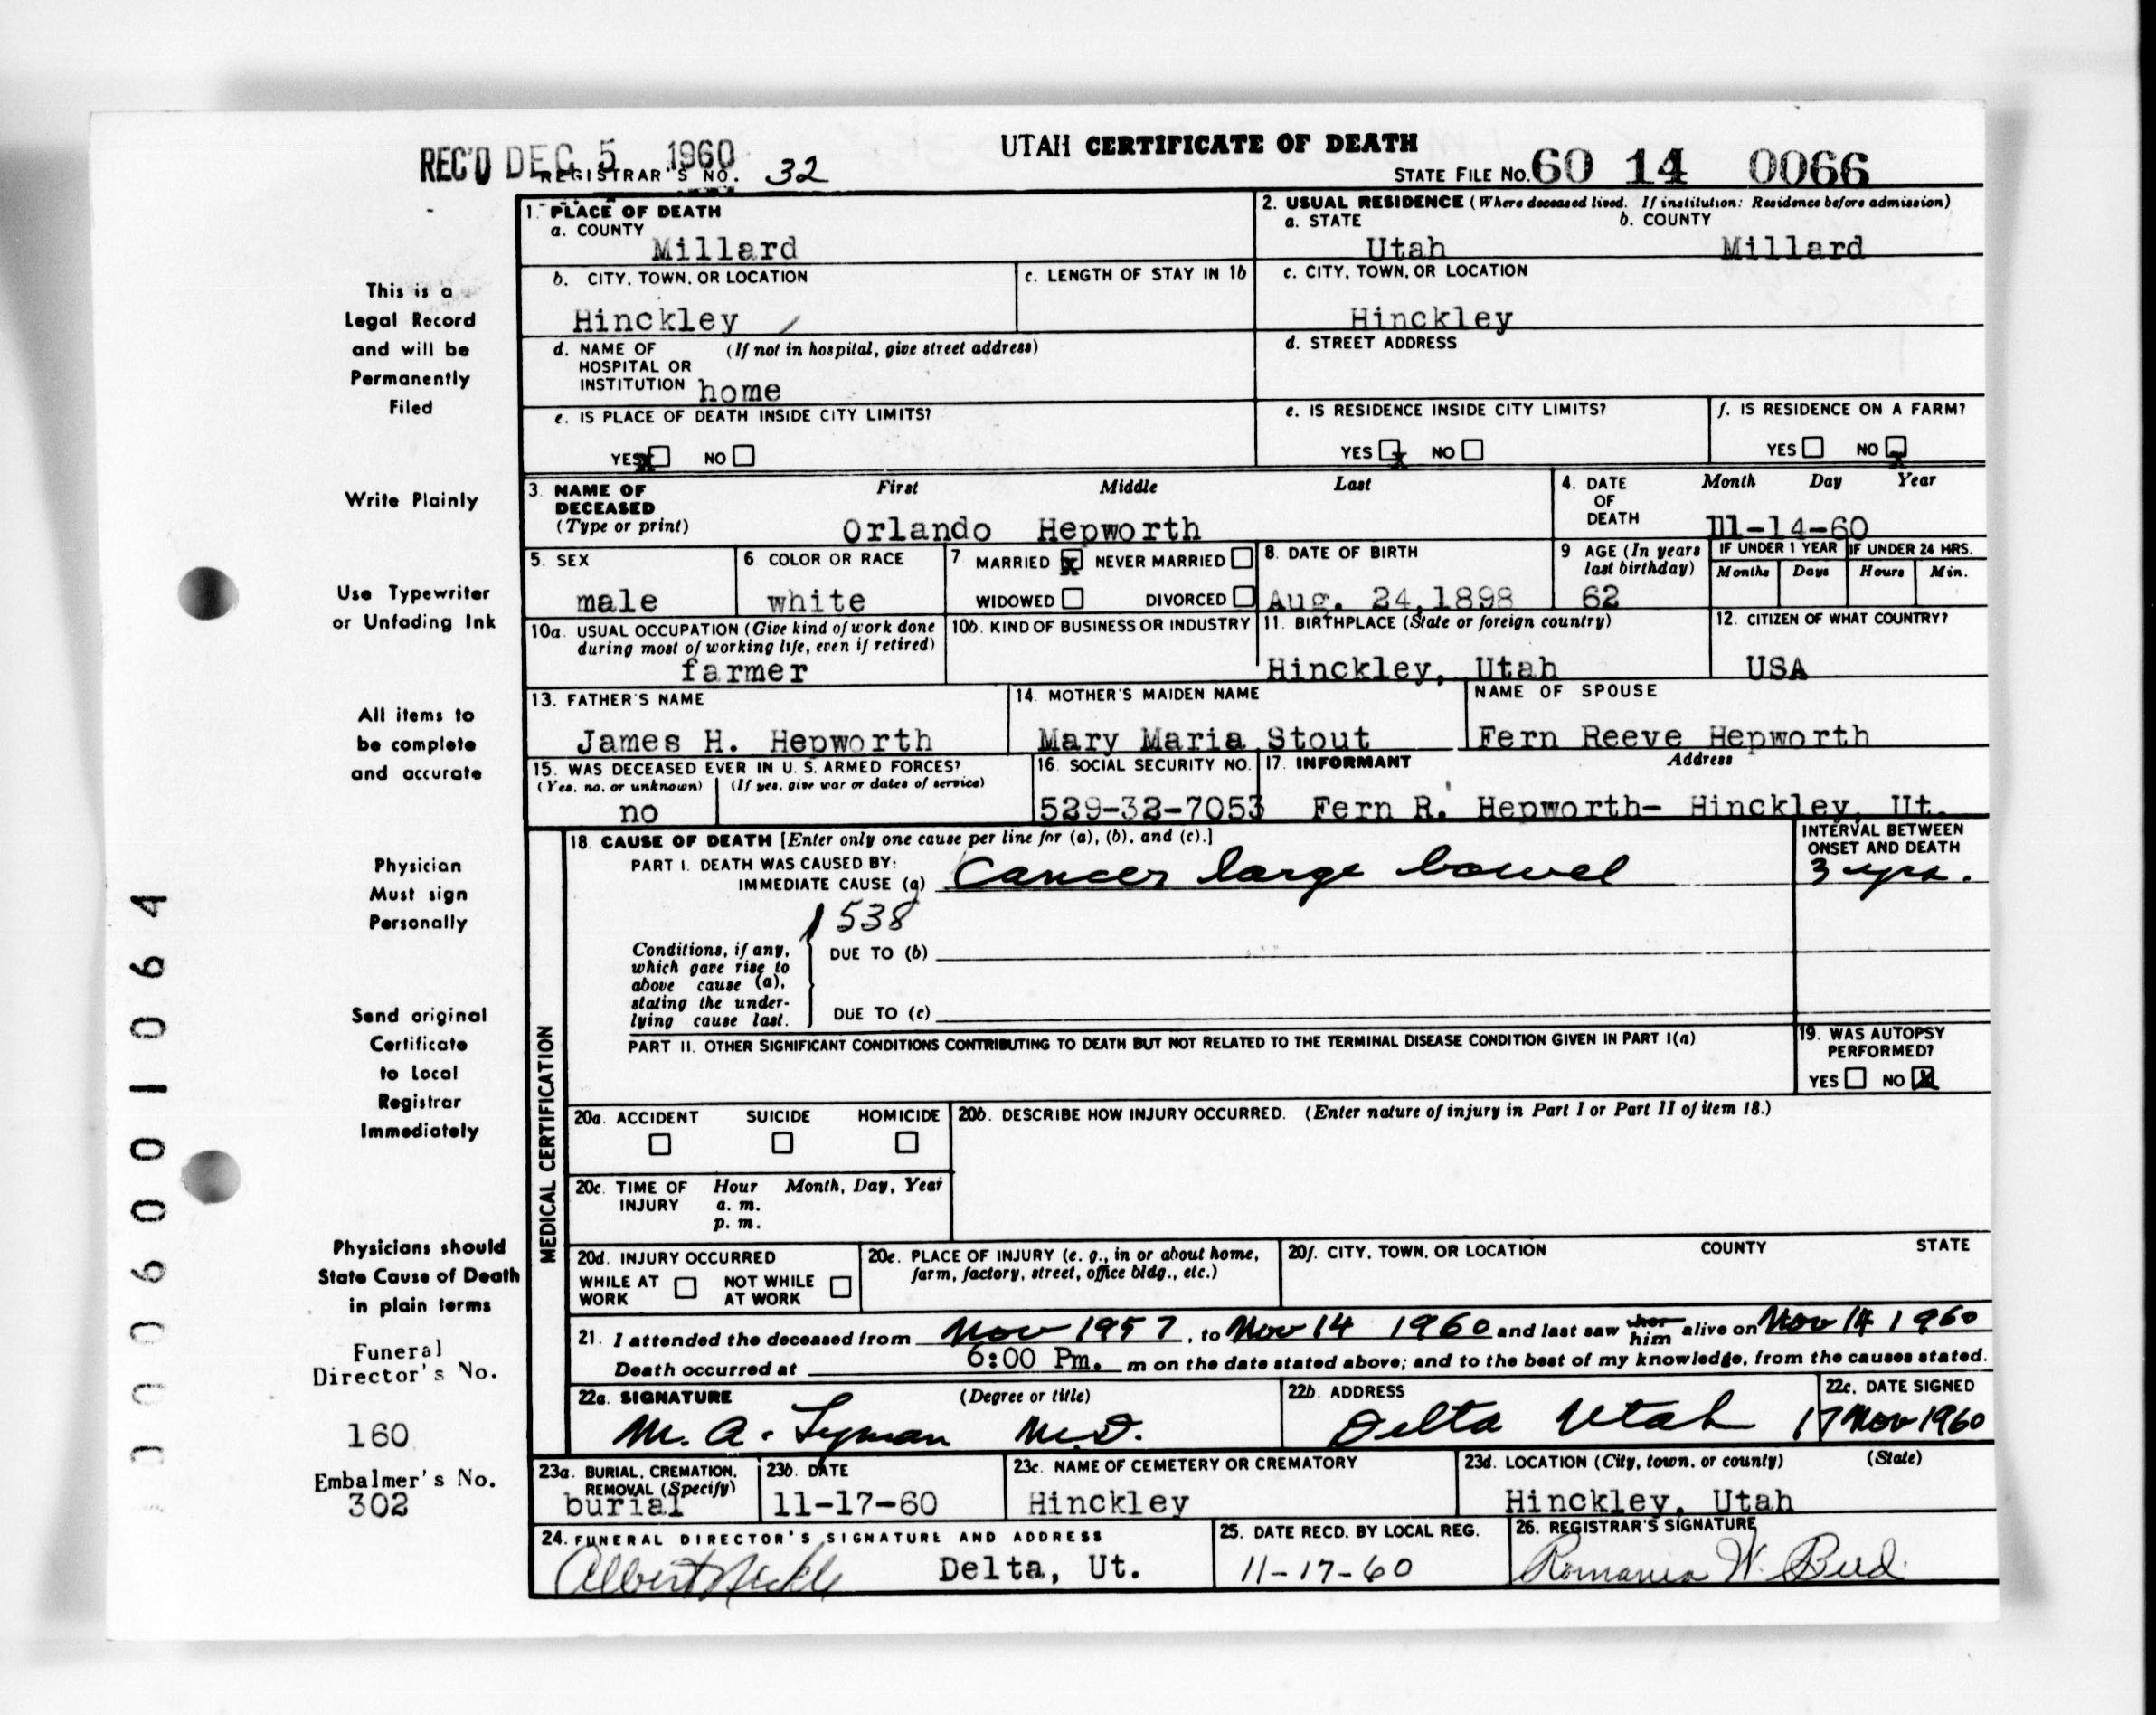 REC'D DEC 5 1960
REGISTRAR'S NO. 32
UTAH CERTIFICATE OF DEATH
STATE FILE NO. 60 14 0066
1. PLACE OF DEATH
a. COUNTY
Millard
2. USUAL RESIDENCE (Where deceased lived. If institution: Residence before admission)
a. STATE b. COUNTY
Utah Millard
b. CITY, TOWN, OR LOCATION
Hinckley
c. LENGTH OF STAY IN 1b
c. CITY, TOWN, OR LOCATION
Hinckley
d. NAME OF (If not in hospital, give street address)
HOSPITAL OR
INSTITUTION home
d. STREET ADDRESS
e. IS PLACE OF DEATH INSIDE CITY LIMITS?
YES x NO
e. IS RESIDENCE INSIDE CITY LIMITS?
YES x NO
f. IS RESIDENCE ON A FARM?
YES NO x
3. NAME OF DECEASED (Type or print)
First Middle Last
Orlando Hepworth
4. DATE OF DEATH
Month Day Year
11-14-60
5. SEX
male
6. COLOR OR RACE
white
7 MARRIED x NEVER MARRIED
WIDOWED DIVORCED
8. DATE OF BIRTH
Aug. 24,1898
9 AGE (In years last birthday)
62
IF UNDER 1 YEAR IF UNDER 24 HRS.
Months Days Hours Min.
10a. USUAL OCCUPATION (Give kind of work done
during most of working life, even if retired)
farmer
10b. KIND OF BUSINESS OR INDUSTRY
11. BIRTHPLACE (State or foreign country)
Hinckley, Utah
12. CITIZEN OF WHAT COUNTRY?
USA
13. FATHER'S NAME
James H. Hepworth
14. MOTHER'S MAIDEN NAME
Mary Maria Stout
NAME OF SPOUSE
Fern Reeve Hepworth
15. WAS DECEASED EVER IN U. S. ARMED FORCES?
(Yes, no, or unknown) (If yes, give war or dates of service)
no
16. SOCIAL SECURITY NO.
529-32-7053
17. INFORMANT Address
Fern R. Hepworth- Hinckley, Ut.
MEDICAL CERTIFICATION
18. CAUSE OF DEATH [Enter only one cause per line for (a), (b), and (c).]
PART I. DEATH WAS CAUSED BY:
IMMEDIATE CAUSE (a) Cancer large bowel
INTERVAL BETWEEN
ONSET AND DEATH
3 yrs.
1538
Conditions, if any,
which gave rise to
above cause (a),
stating the under-
lying cause last.
DUE TO (b)
DUE TO (c)
PART II. OTHER SIGNIFICANT CONDITIONS CONTRIBUTING TO DEATH BUT NOT RELATED TO THE TERMINAL DISEASE CONDITION GIVEN IN PART I(a)
19. WAS AUTOPSY
PERFORMED?
YES NO x
20a. ACCIDENT SUICIDE HOMICIDE
20b. DESCRIBE HOW INJURY OCCURRED. (Enter nature of injury in Part I or Part II of item 18.)
20c. TIME OF INJURY
Hour Month, Day, Year
a. m.
p. m.
20d. INJURY OCCURRED
WHILE AT WORK NOT WHILE AT WORK
20e. PLACE OF INJURY (e. g., in or about home,
farm, factory, street, office bldg., etc.)
20f. CITY, TOWN, OR LOCATION COUNTY STATE
21. I attended the deceased from Nov 1957, to Nov 14 1960 and last saw her him alive on Nov 14 1960
Death occurred at 6:00 Pm. m on the date stated above; and to the best of my knowledge, from the causes stated.
22a. SIGNATURE (Degree or title)
M. A. Lyman M.D.
22b. ADDRESS
Delta Utah
22c. DATE SIGNED
17 Nov 1960
23a. BURIAL, CREMATION,
REMOVAL (Specify)
burial
23b. DATE
11-17-60
23c. NAME OF CEMETERY OR CREMATORY
Hinckley
23d. LOCATION (City, town, or county) (State)
Hinckley, Utah
24. FUNERAL DIRECTOR'S SIGNATURE AND ADDRESS
Albert Delta, Ut.
25. DATE RECD. BY LOCAL REG.
11-17-60
26. REGISTRAR'S SIGNATURE
W.
This is a
Legal Record
and will be
Permanently
Filed
Write Plainly
Use Typewriter
or Unfading Ink
All items to
be complete
and accurate
Physician
Must sign
Personally
Send original
Certificate
to Local
Registrar
Immediately
Physicians should
State Cause of Death
in plain terms
Funeral
Director's No.
160
Embalmer's No.
302
0006001064